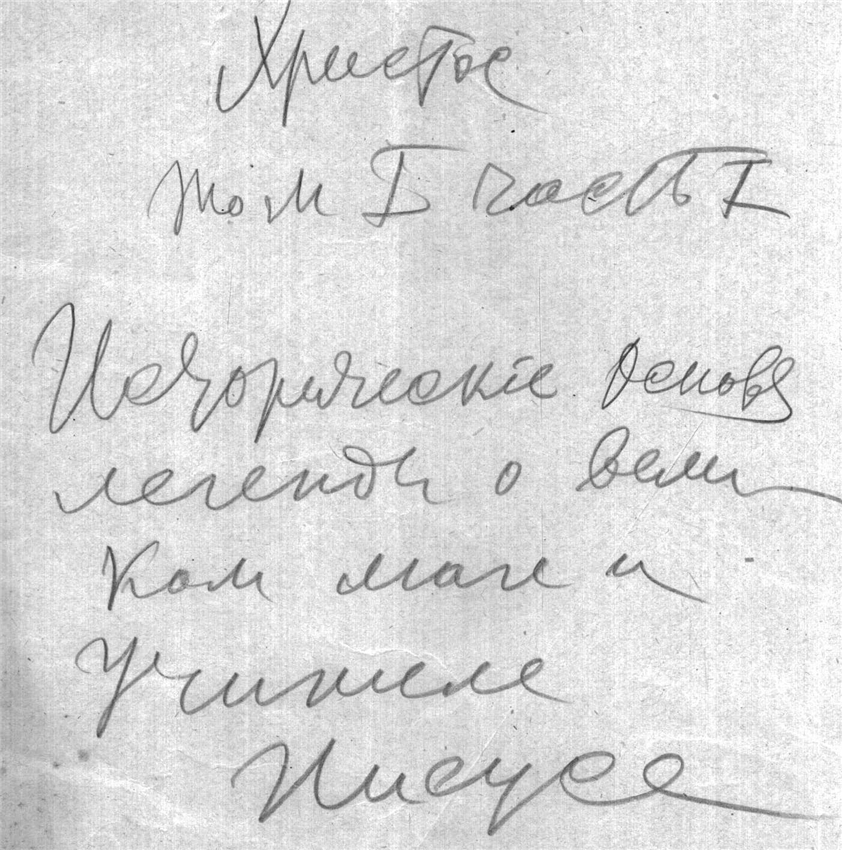 Христос
том I часть I
Историческіе основы
легенды о вели
ком маге и
учителе
Иисусе